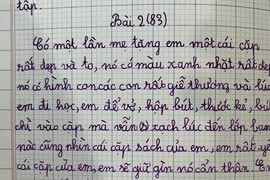 tập.
Bài 2 (83)
Có một lần mẹ tặng em một cái cặp
rất đẹp và to, nó có màu xanh nhạt rất đẹp
nó có hình con các con rất giễ thương và lúc
em đi học, em để vở, hộp bút, thước kẻ, bút
chì vào cặp mà vẫn xách lúc đến lớp bạn
nào cũng nhìn cái cặp sách của em, em rất yê
cái cặp của em, em sẽ giữ gìn nó cẩn thận.